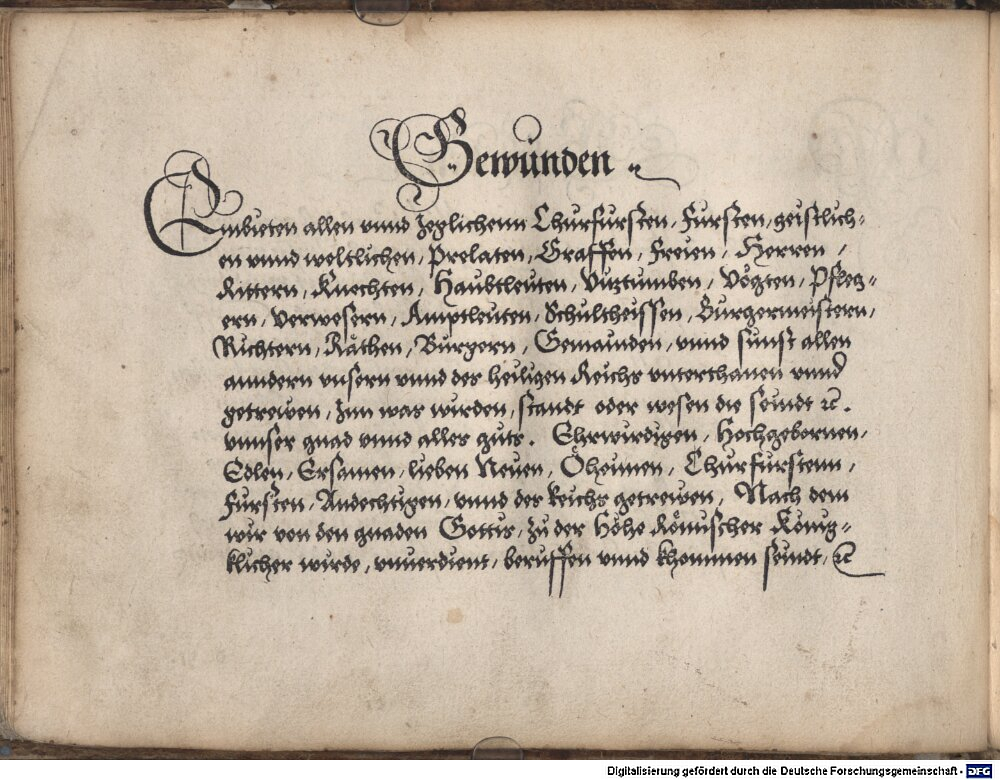 Gewunden.
Embieten allen vnnd Jeglichenn Churfursten, Fursten, geistlich-
en vnnd weltlichen, Prelaten, Graffen, Freien, Herren,
Rittern, Knechten, Haubtleuten, Vitztumben, Vögten, Pfleg-
ern, Verwesern, Amptleuten, Schultheissen, Burgermeistern,
Richtern, Räthen, Burgern, Gemainden, vnnd sunst allen
anndern vnsern vnnd des heiligen Reichs vnterthanen vnnd
getrewen, Inn was wirden, standt oder wesen die seindt ꝛc.
vnnser gnad vnnd alles guts. Ehrwirdigen, Hochgebornen,
Edlen, Ersamen, lieben Neuen, Öheimen, Churfurstenn,
Fursten, Andechtigen, vnnd des Reichs getrewen, Nach dem
wir von den gnaden Gottis, zu der Höhe Römischer König-
klicher wirde, vnuerdient, beruffen vnnd khommen seindt, ꝛc
Digitalisierung gefördert durch die Deutsche Forschungsgemeinschaft - DFG